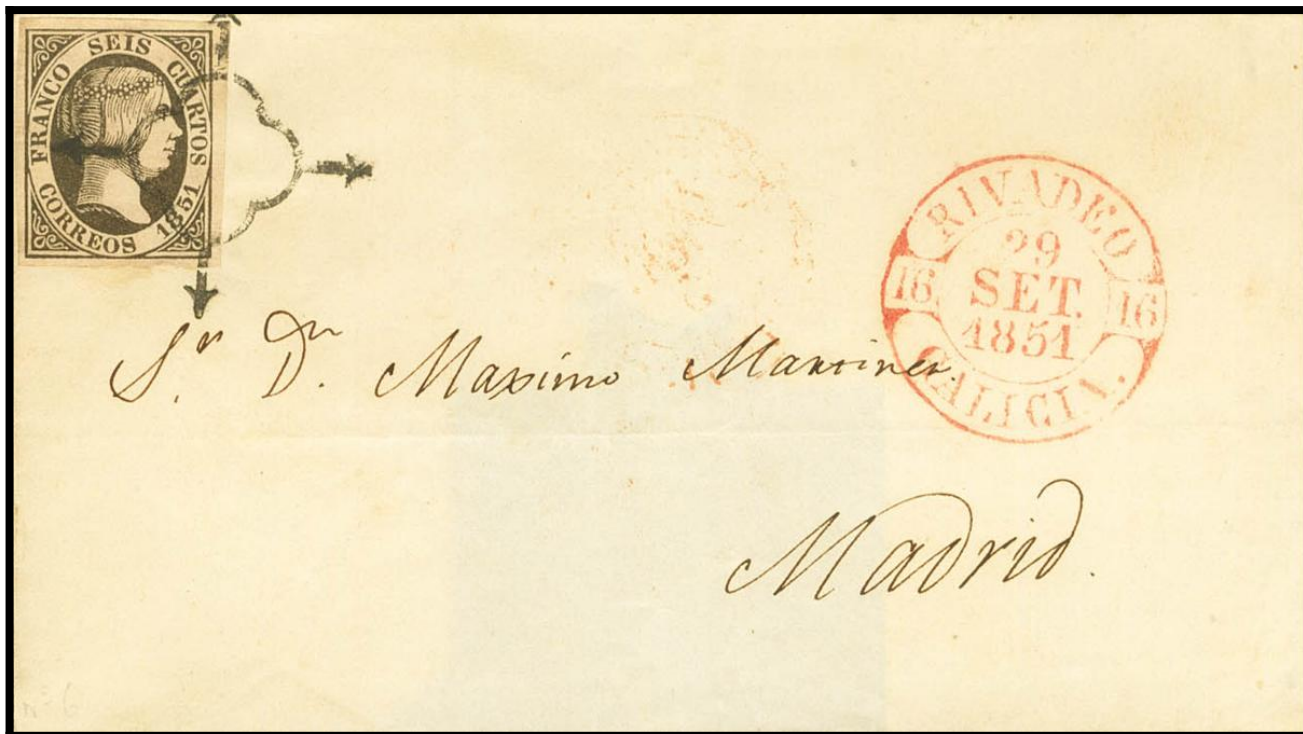 FRANCO SEIS CUARTOS
CORREOS 1851
RIVADEO
29
SET.
1851
16 16
GALICIA.
Sr. Dn. Maximo Martinez
Madrid.
nº 6